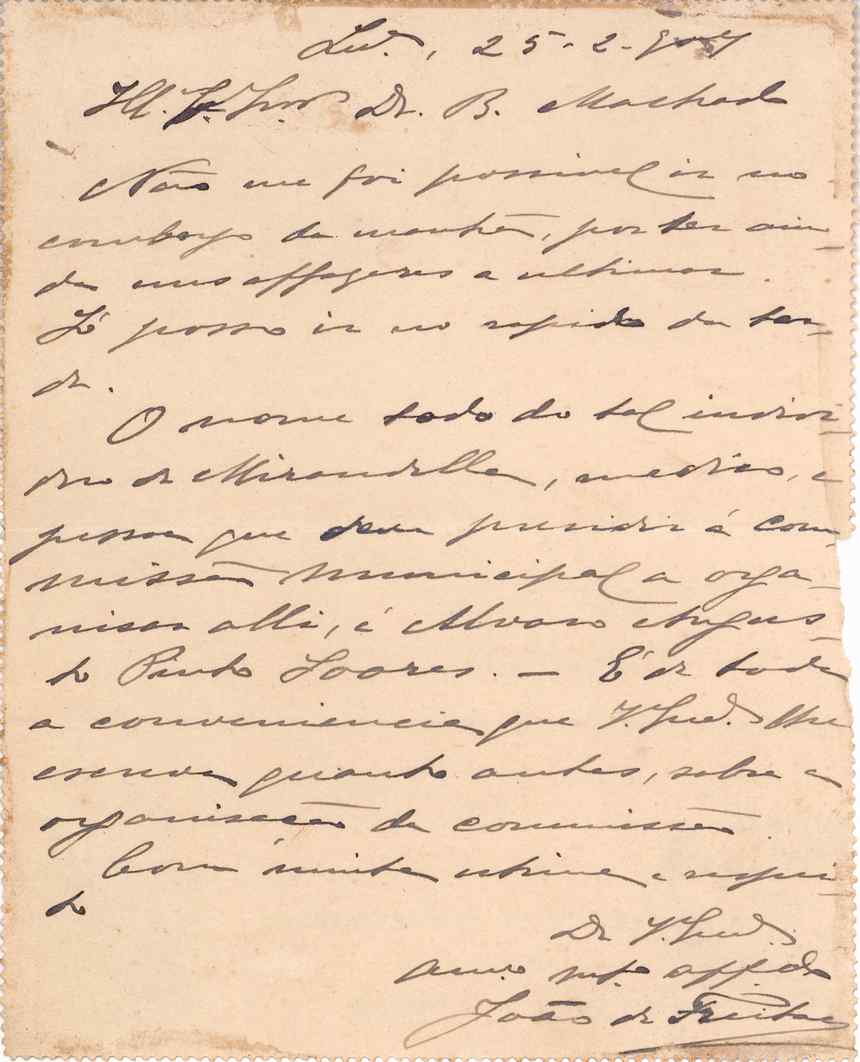 25-2-907
Dr. B. Machado
Não me foi possivel ir no
comboyo da manhã, por ter ain-
da uns affazeres a ultimar.
Só posso ir no rapido da tar-
de.
O nome todo do tal indivi-
duo de Mirandella, medico, e
pessoa que deve presidir á com-
missão municipal a orga-
nisar alli, é Alvaro Augus-
to Pinto Soares. — É de toda
a conveniencia que V. Exª lhe
escreva quanto antes, sobre a
organisação da commissão.
Com muita estima e respei-
to
De V. Exª
amº mtº
João de Freitas